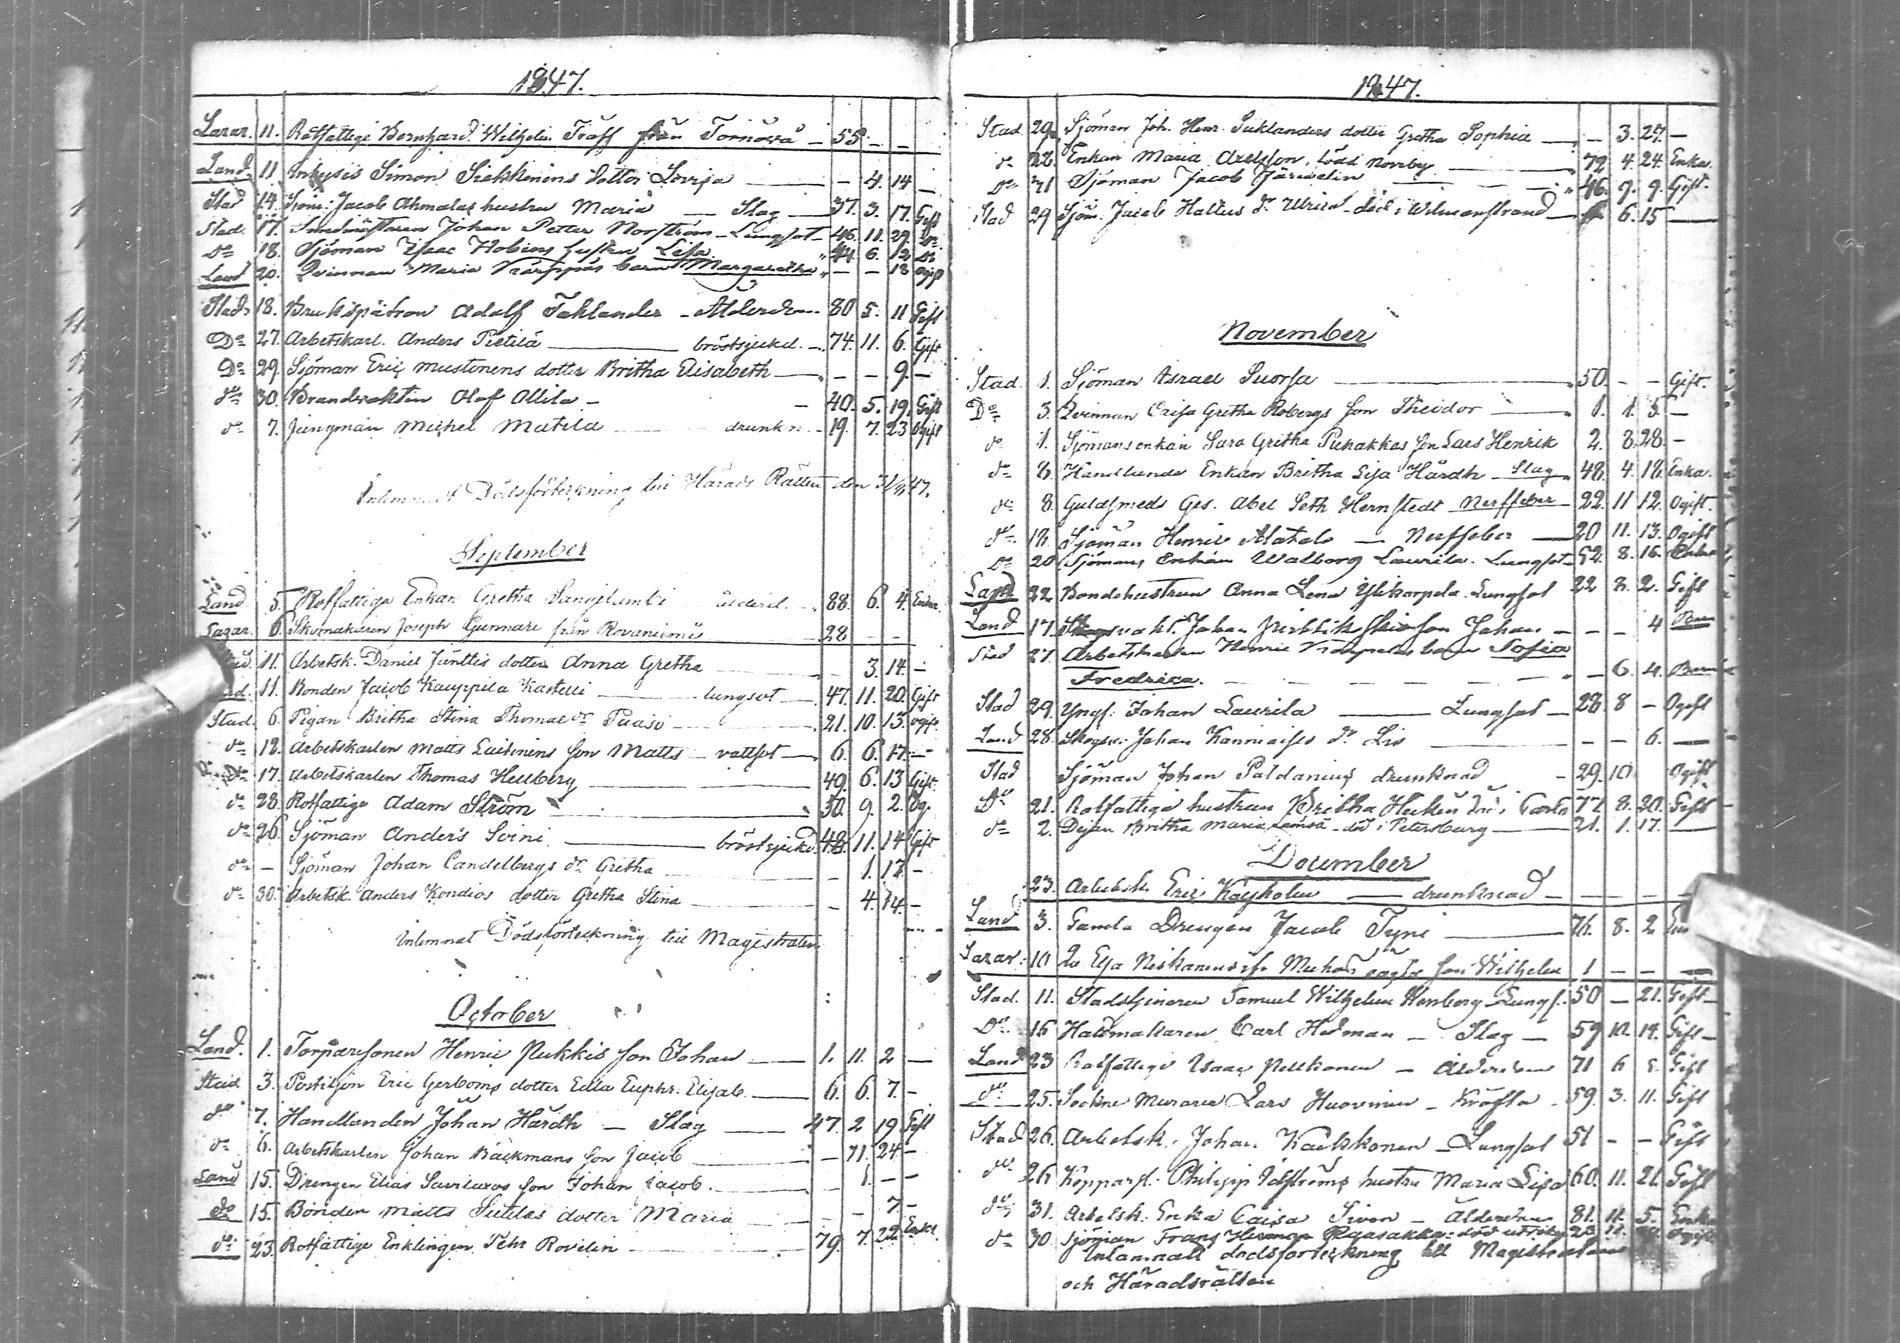 1847.
Lazar. 11. Rotfattige Bernhard Wilhelm Träff från Torneå - 55 - -
Land 11 Inhysis Simon Dotter Lovisa - 4. 14 -
Stad 14. Sjöm. Jacob Ahmalas hustru Maria - Slag - 37. 3. 17. Gift
Stad. 17. Johan Petter Norström - Lungsot - 46. 11. 29. Do
Do 18. Sjöman Isaac hustru Lisa 44 6. 12 Do
Land 20. Qvinnan Maria Kärppäs barn Margaretha - - 18 Ogift
Stad 18. Brukspatron Adolf Fahlander - Ålderdom - 80 5. 11 Gift
Do 27. Arbetskarl. Anders Pietilä - bröstsjukd. - 74. 11. 6. Gift
Do 29. Sjöman Eric Mustonens dotter Britha Elisabeth - - - 9. -
do 30. Brandvakten Olof Ollila - 40. 5. 19. Gift
do 7. Jungman Michel Matila - drunkn. - 19. 7. 23 Ogift
Inlemnat Dödsförteckning till Härads Rätten den 31/8 47.
September
Land 5. Rotfattiga Enkan Gretha ålderd. - 88. 6. 4. Enka
Lazar. 6. Skomakaren Joseph Gunnari från Rovaniemi - 28 - -
Stad. 11. Arbetsk. Daniel Junttis dotter Anna Gretha - 3. 14. -
Land. 11. Bonden Jacob Kauppila Kastelli - lungsot - 47. 11. 20. Gift
Stad. 6. Pigan Britha Stina Thomae dr Paaso - 21. 10. 13. ogift
do 12. Arbetskarlen Matts Laitinens son Matts - vattsot - 6. 6. 17. -
Do 17. Arbetskarlen Thomas Hellberg - 49. 6. 13 Gift.
do 28. Rotfattige Adam Ström - 50. 9. 2. Og.
do 26. Sjöman Anders Soini - bröstsjukd. 48. 11. 14 Gift
do - Sjöman Johan Candelbergs dr Gretha - 1. 17 -
do 30. Arbetsk. Anders Kondios dotter Gretha Stina - 4. 14. -
Inlemnat Dödsförteckning till Magistraten
October
Land. 1. Torparesonen Henric Pukkis son Johan - 1. 11. 2 -
Stad 3. Postiljon Eric Gerboms dotter Edla Euphr. Elisab. - 6. 6. 7. -
do 7. Handlanden Johan Hårdh - Slag - 47. 2 19 Gift
do 6. Arbetskarlen Johan Bäckmans son Jacob - 11. 24 -
Land 15. Drengen Elias son Johan Jacob. - 1. - -
do 15. Bonden Matts dotter Maria - - 7 -
do 23. Rotfattige Enklingen Pehr Rovelin - 79. 7. 22 Enkl.
1847.
Stad 29. Sjöman Joh. Henr. dotter Gretha Sophia - - 3. 27. -
do 28. Enkan Maria Axelsson, död Norrby 72 4 24. Enka.
Do 31 Sjöman Jacob Järvelin - 46. 9. 9. Gift.
Stad 29 Sjöm. Jacob dr Ulrica - död i Wilmanstrand - 6. 15 -
November
Stad. 1. Sjöman Israel Suorsa - 50. - - Gift.
Do 3. Qvinnan Caisa Gretha Robergs son Theodor - 1. 1. 5. -
do 1. Sjömansenkan Sara Gretha Puhakkas son Lars Henrik 2. 8. 28 -
do 8. Handlande Enkan Britha Lisa Hårdh - Slag - 48. 4. 18. Enka.
do 8. Guldsmeds Ges. Abel Seth Hernstedt Nerffeber - 22. 11 12. Ogift.
do 18. Sjöman Henric Matala - Nerffeber - 20 11. 13. Ogift
do 20 Sjömans Enkan Walborg Laurila. Lungsot - 52. 8. 16. Enka
Land 22. Bondehustrun Anna Lena Ylikarpela. Lungsot 22 8. 2. Gift
Land 17. Johan son Johan - - - 4 Barn
Stad 27. Arbetskarlen Henric barn Sofia
Fredrica. - - 6. 4. Barn
Stad 29. Yngl. Johan Laurila - Lungsot - 28. 8 - Ogift
Land 28. Johan dr Lis - - - 6. -
Stad Sjöman Johan Paldanius drunknad - 29. 10 Ogift
Do 21. Rotfattige hustrun Britha 77. 8. 20. Gift
do 2. Pigan Britha Maria Lämsä - död i Petersburg - 21. 1. 17. -
December
23. Arbetsk. Eric - drunknad - - - -
Land 3. Gamla Drengen Jacob Tyni - 76. 8. 2
Lazar. 10 Qv. Lisa son Wilhelm 1 - - -
Stad. 11. Samuel Wilhelm Wenberg - Lungs. 50 - 21. Gift
Do 15 Hattmakaren Carl Hedman - Slag - 59 10. 19. Gift -
Land 23 Rotfattige Isaac Pelkonen - Ålderdom 71 6 5. Gift
do 25. Sockne Murare Lars Huovinen - Kräfta - 59. 3. 11. Gift
Stad 26. Arbetsk. Johan Karkkonen - Lungsot 51 - - Gift
do 26 Kopparsl. Philip Idströms hustru Maria Lisa 60. 11. 21. Gift
do 31. Arbetsk. Enka Caisa Sivon - Ålderdom 81. 11. 5. Enka
do 30 Sjöman Frans Herman - död utrikes 23. 11. Ogift
Inlämnatt dödsförteckning till Magistraten
och Häradsrätten